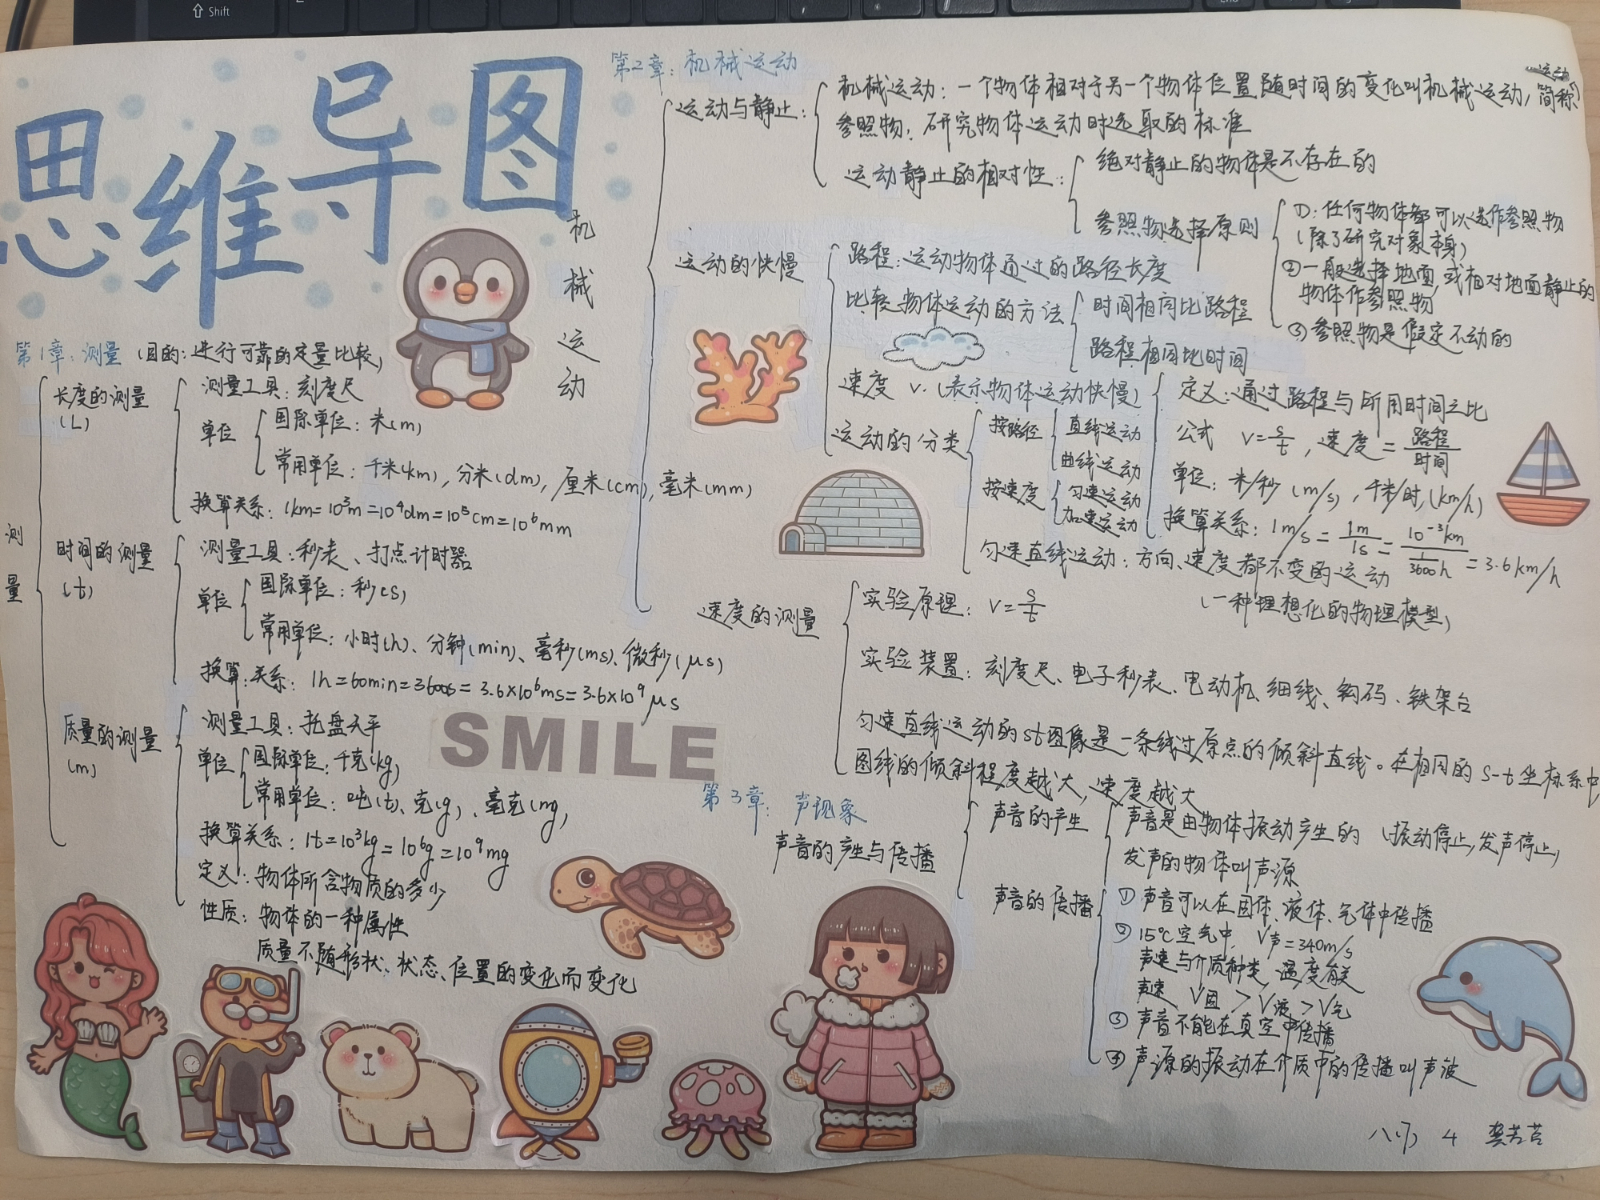 Shift
思维导图
机械运动
第1章:测量 (目的:进行可靠的定量比较)
测量
长度的测量
(L)
测量工具:刻度尺
单位
国际单位:米(m)
常用单位:千米(km),分米(dm),厘米(cm),毫米(mm)
换算关系:1km=10³m=10⁴dm=10⁵cm=10⁶mm
时间的测量
(t)
测量工具:秒表、打点计时器
单位
国际单位:秒(s)
常用单位:小时(h)、分钟(min)、毫秒(ms)、微秒(μs)
换算关系:1h=60min=3600s=3.6×10⁶ms=3.6×10⁹μs
质量的测量
(m)
测量工具:托盘天平
单位
国际单位:千克(kg)
常用单位:吨(t)、克(g)、毫克(mg)
换算关系:1t=10³kg=10⁶g=10⁹mg
定义:物体所含物质的多少
性质:物体的一种属性
质量不随形状、状态、位置的变化而变化
SMILE
第2章:机械运动
运动与静止:
机械运动:一个物体相对于另一个物体位置随时间的变化叫机械运动,(简称
运动)
参照物:研究物体运动时选取的标准
运动静止的相对性:
绝对静止的物体是不存在的
参照物选择原则
①:任何物体都可以选作参照物
(除了研究对象本身)
②一般选择地面,或相对地面静止的
物体作参照物
③参照物是假定不动的
运动的快慢
路程:运动物体通过的路径长度
比较物体运动的方法
时间相同比路程
路程相同比时间
速度 v.(表示物体运动快慢)
定义:通过路程与所用时间之比
公式 v=s/t,速度=路程/时间
单位:米/秒(m/s),千米/时,(km/h)
换算关系:1m/s=1m/1s=10⁻³km/(1/3600h)=3.6km/h
运动的分类
按路径
直线运动
曲线运动
按速度
匀速运动
加速运动
匀速直线运动:方向、速度都不变的运动
(一种理想化的物理模型)
速度的测量
实验原理:v=s/t
实验装置:刻度尺、电子秒表、电动机、细线、钩码、铁架台
匀速直线运动的st图像是一条线过原点的倾斜直线。在相同的s-t坐标系中,
图线的倾斜程度越大,速度越大
第3章:声现象
声音的产生与传播
声音的产生
声音是由物体振动产生的(振动停止,发声停止)
发声的物体叫声源
声音的传播
①声音可以在固体、液体、气体中传播
②15℃空气中,V声=340m/s
声速与介质种类、温度有关
声速 V固>V液>V气
③声音不能在真空中传播
④声源的振动在介质中的传播叫声波
4